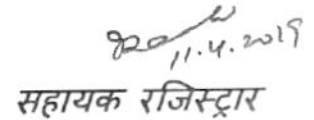 11.4.2019
सहायक रजिस्ट्रार